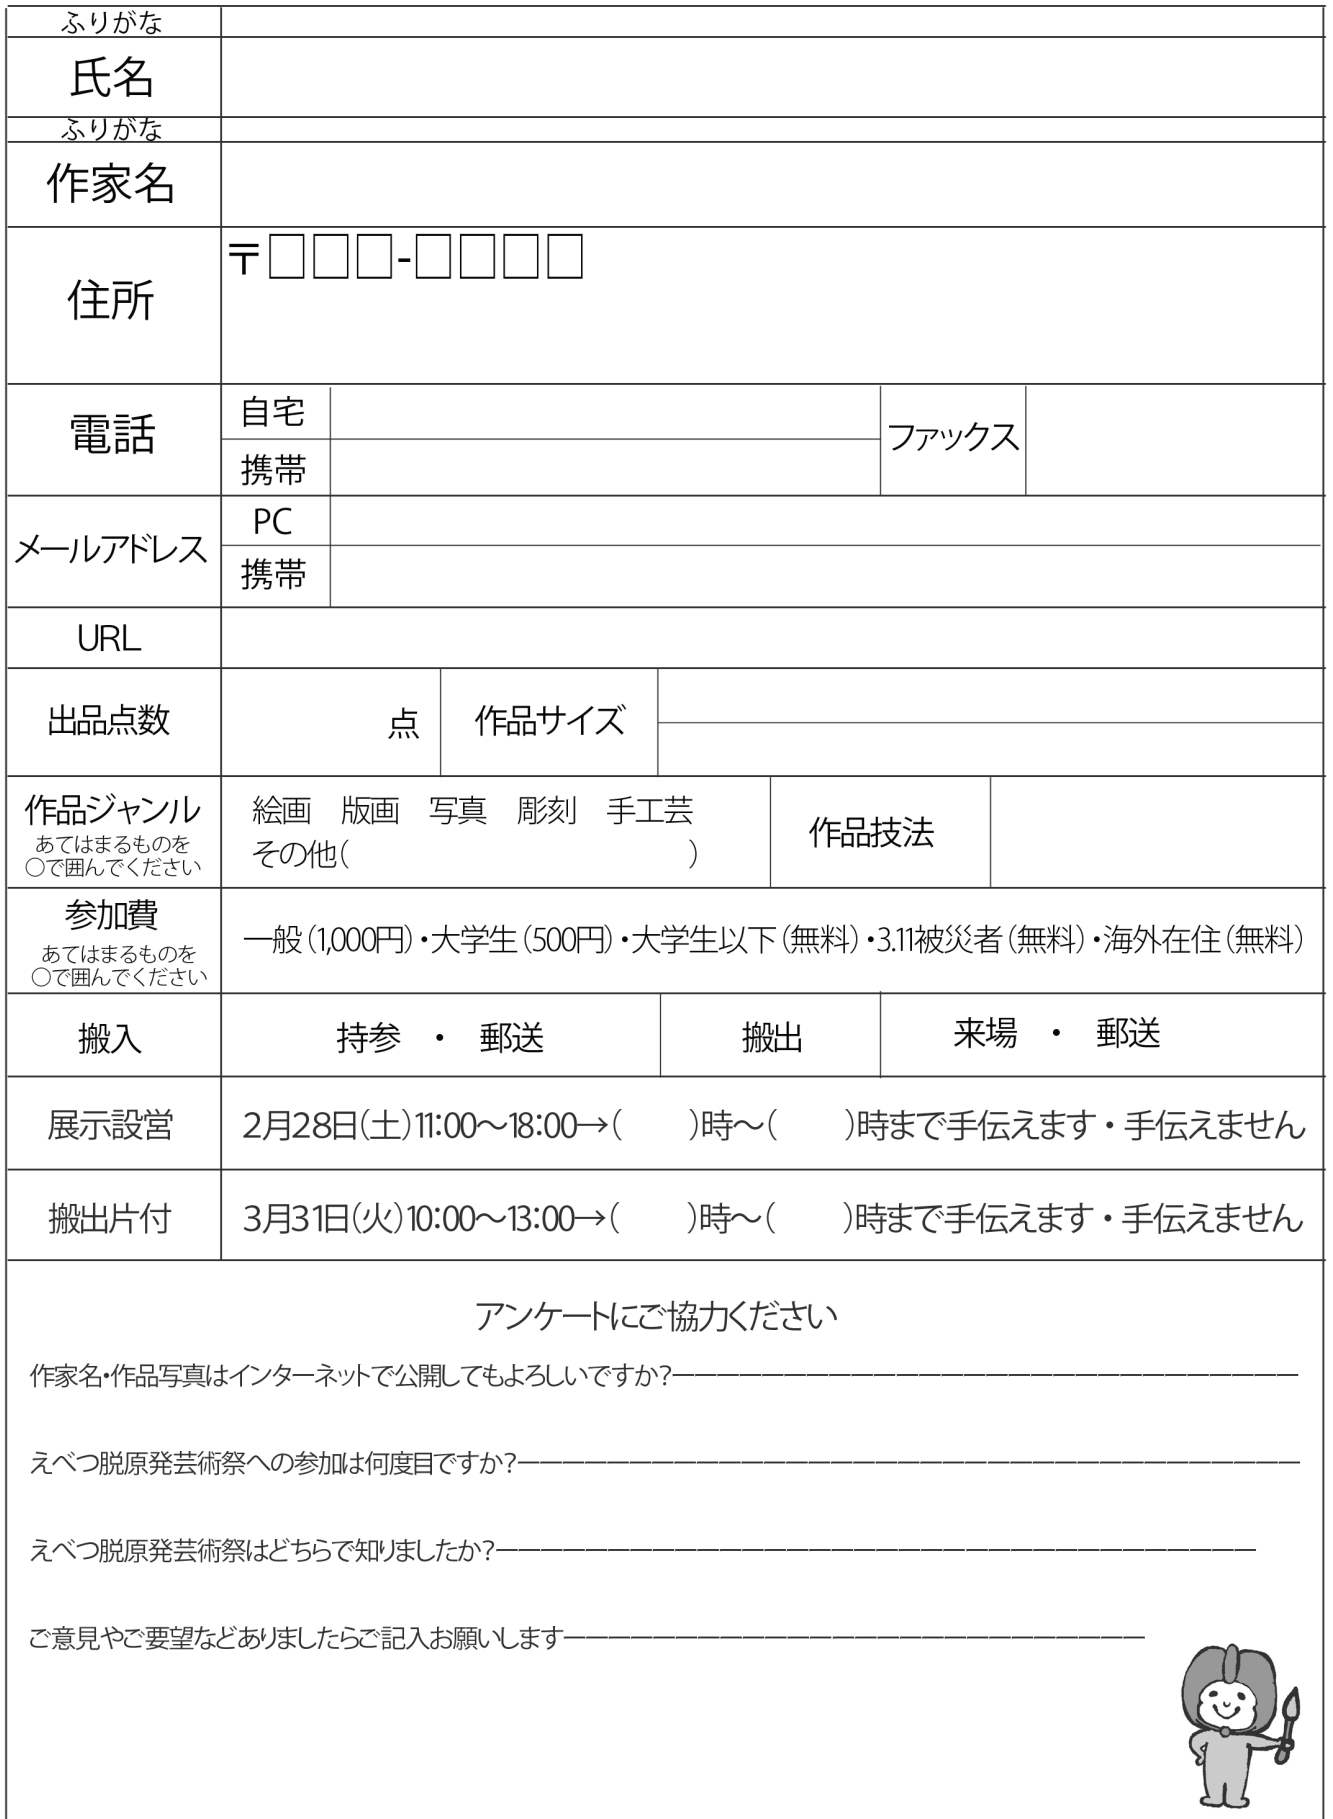 ふりがな
氏名
ふりがな
作家名
住所
〒□□□-□□□□
電話
自宅
携帯
ファックス
メールアドレス
PC
携帯
URL
出品点数
点
作品サイズ
作品ジャンル
あてはまるものを
○で囲んでください
絵画　版画　写真　彫刻　手工芸
その他(　　　　　　　　　　　)
作品技法
参加費
あてはまるものを
○で囲んでください
一般(1,000円)・大学生(500円)・大学生以下(無料)・3.11被災者(無料)・海外在住(無料)
搬入
持参　・　郵送
搬出
来場　・　郵送
展示設営
2月28日(土)11:00〜18:00→(　　)時〜(　　)時まで手伝えます・手伝えません
搬出片付
3月31日(火)10:00〜13:00→(　　)時〜(　　)時まで手伝えます・手伝えません
アンケートにご協力ください
作家名・作品写真はインターネットで公開してもよろしいですか?
えべつ脱原発芸術祭への参加は何度目ですか?
えべつ脱原発芸術祭はどちらで知りましたか?
ご意見やご要望などありましたらご記入お願いします